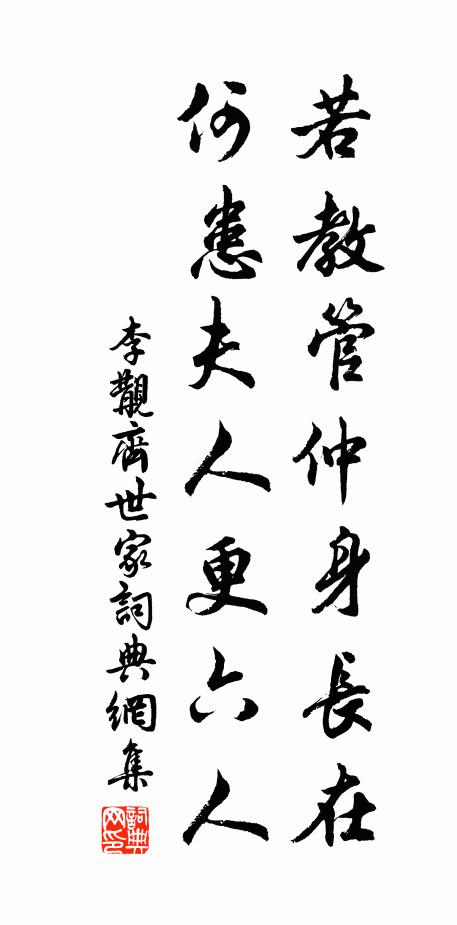 若教管仲身長在
何患夫人更六人
李觀齊世家詞典網集
詞典网印